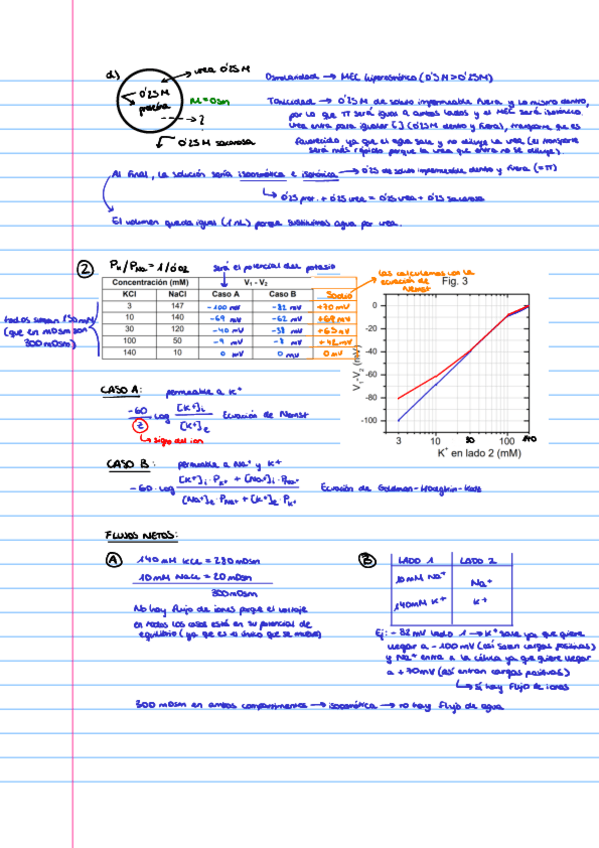 d)
urea 0'25M
0'25 M
proteína
M = 0sm
?
0'25 M sacarosa
Osmolaridad → MEC hiperosmótica (0'5M > 0'25M)
Tonicidad → 0'25 M de soluto impermeable fuera y lo mismo dentro,
por lo que π será igual a ambos lados y el MEC será isotónico.
Urea entra para igualar [ ] (0'25M dentro y fuera), transporte que es
favorecido ya que el agua sale y no diluye la urea (el transporte
será más rápido porque la urea que entra no se diluye).
Al final, la solución sería isoosmótica e isotónica → 0'25 de soluto impermeable dentro y fuera (=π)
↳ 0'25 prot. + 0'25 urea = 0'25 urea + 0'25 sacarosa
El volumen queda igual (1 nL) porque sustituimos agua por urea.
② PK/PNa = 1/0'02
será el potencial del potasio
las calculamos con la
ecuación de
Nernst
Concentración (mM) V1 - V2
KCl NaCl Caso A Caso B Sodio
3 147 -100 mV -82 mV +70 mV
10 140 -69 mV -62 mV +68 mV
30 120 -40 mV -38 mV +65 mV
100 50 -9 mV -8 mV +42 mV
140 10 0 mV 0 mV 0 mV
todos suman 150 mM
(que en mOsm son
300 mOsm)
Fig. 3
0
-20
-40
-60
-80
-100
V1-V2 (mV)
3 10 30 100 140
K+ en lado 2 (mM)
CASO A: permeable a K+
-60/z · log [K+]i/[K+]e Ecuación de Nernst
↳ signo del ion
CASO B: permeable a Na+ y K+
-60 · log [K+]i · PK+ + [Na+]i · PNa+ / [Na+]e · PNa+ + [K+]e · PK+ Ecuación de Goldman-Hodgkin-Katz
FLUJOS NETOS:
Ⓐ 140 mM KCl = 280 mOsm
10 mM NaCl = 20 mOsm
300 mOsm
No hay flujo de iones porque el voltaje
en todos los casos está en su potencial de
equilibrio (ya que es el único que se mueve)
Ⓑ LADO 1 LADO 2
10 mM Na+ Na+
140 mM K+ K+
Ej: -82 mV lado 1 → K+ sale ya que quiere
llegar a -100 mV (así salen cargas positivas)
y Na+ entra a la célula ya que quiere llegar
a +70 mV (así entran cargas positivas)
↳ Sí hay flujo de iones
300 mOsm en ambos compartimentos → isoosmótica → no hay flujo de agua